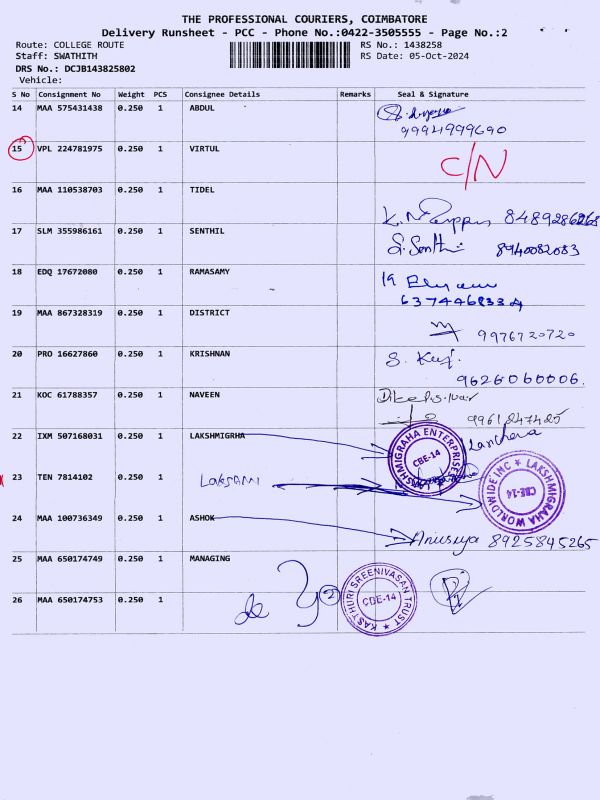 THE PROFESSIONAL COURIERS, COIMBATORE
Delivery Runsheet - PCC - Phone No.:0422-3505555 - Page No.:2
Route: COLLEGE ROUTE
RS No.: 1438258
Staff: SWATHITH
RS Date: 05-Oct-2024
DRS No.: DCJB143825802
Vehicle:
S No Consignment No Weight PCS Consignee Details Remarks Seal & Signature
14 MAA 575431438 0.250 1 ABDUL
9994999690
15 VPL 224781975 0.250 1 VIRTUL C/N
16 MAA 110538703 0.250 1 TIDEL
8489286268
17 SLM 355986161 0.250 1 SENTHIL
S. Senthil 8940082083
18 EDQ 17672080 0.250 1 RAMASAMY
6374468334
19 MAA 867328319 0.250 1 DISTRICT
9976720720
20 PRO 16627860 0.250 1 KRISHNAN
9626060006.
21 KOC 61788357 0.250 1 NAVEEN
9961247425
22 IXM 507168031 0.250 1 LAKSHMIGRHA
LAKSHMIGRAHA ENTERPRISES
CBE-14
23 TEN 7814102 0.250 1
LAKSHMIGRAHA WORLDWIDE INC
CBE-14
24 MAA 100736349 0.250 1 ASHOK
Anusuya 8925845265
25 MAA 650174749 0.250 1 MANAGING
26 MAA 650174753 0.250 1
de
2
KASTHURI SREENIVASAN TRUST
CBE-14